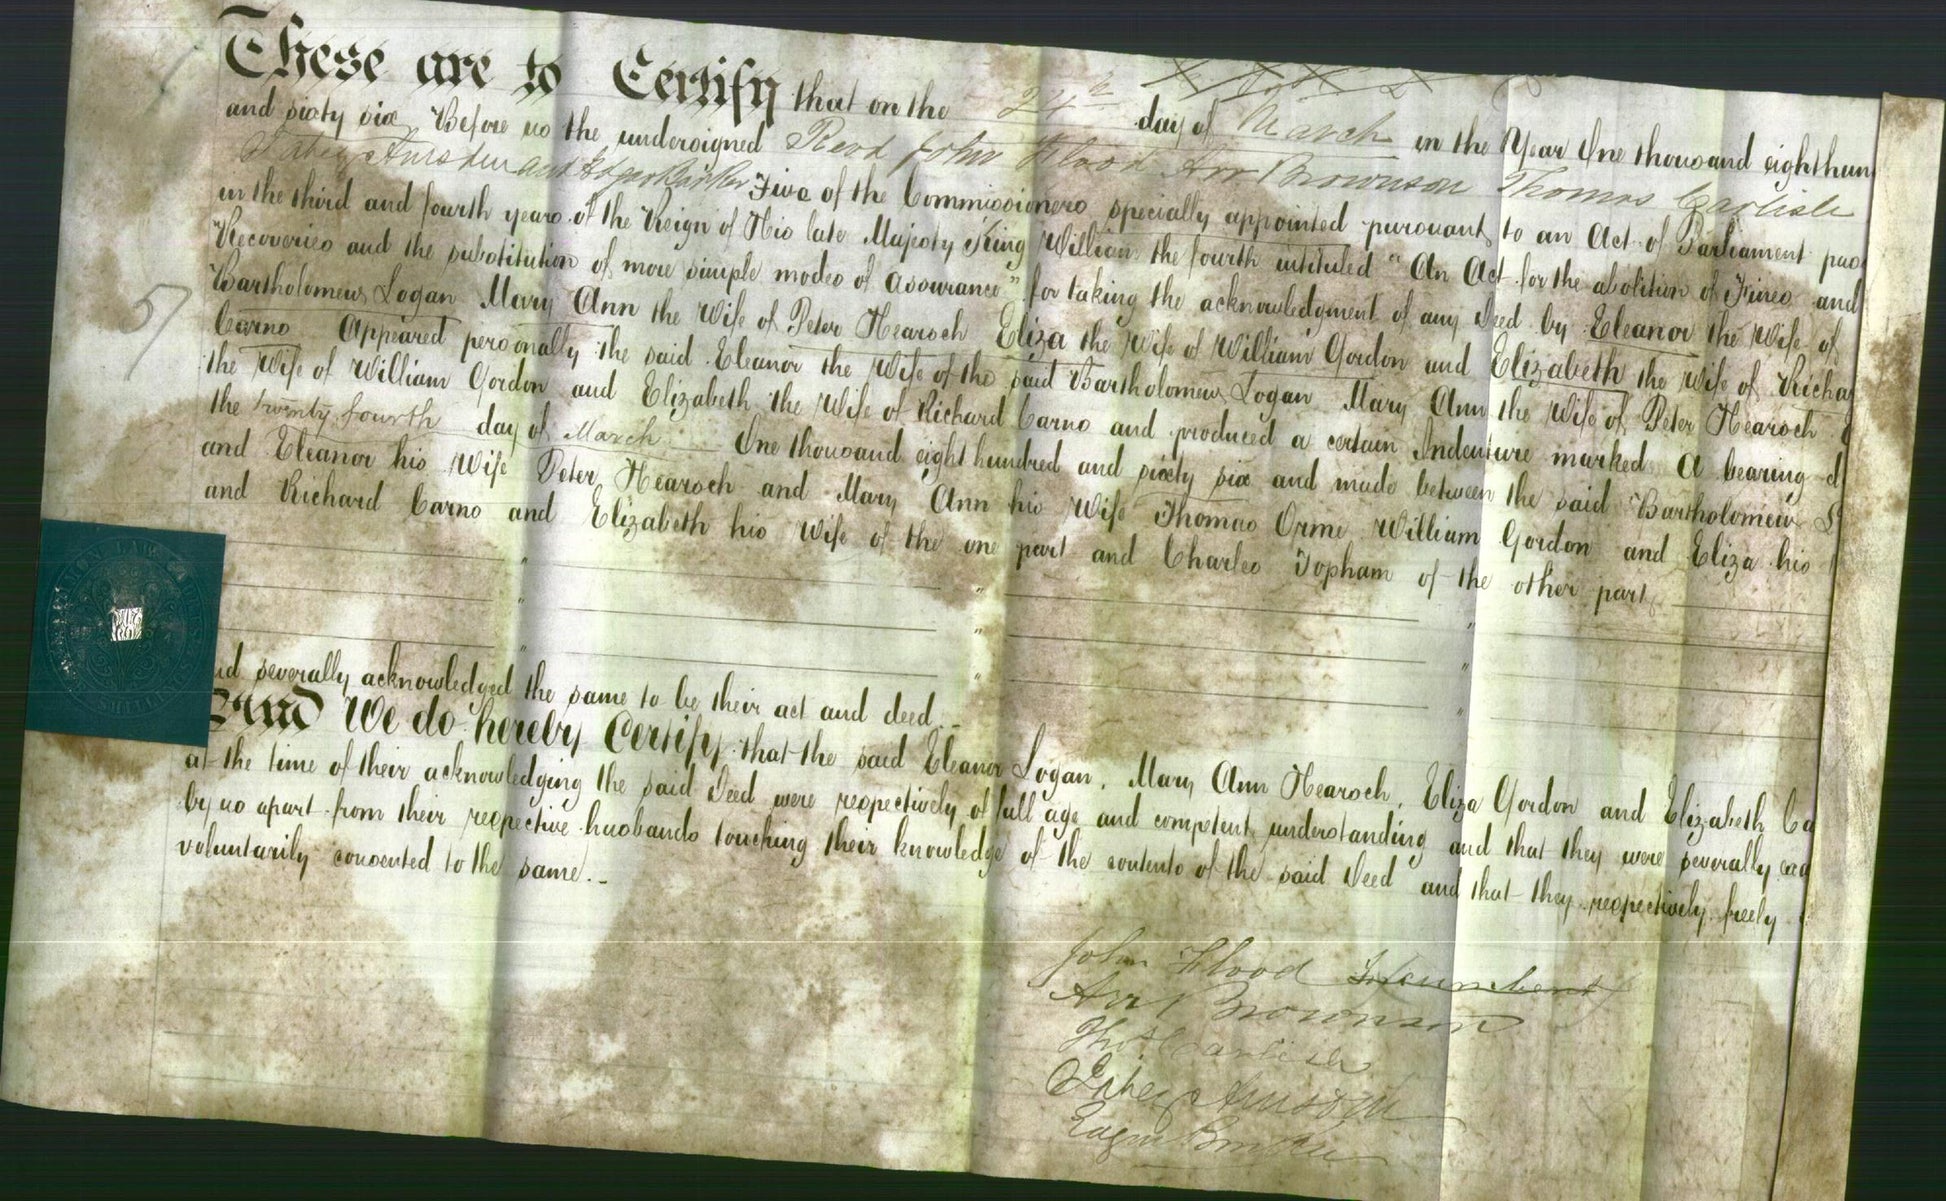 These are to Certify that on the 24th day of March in the Year One thousand eight hun
and sixty six Before us the undersigned Revd John Flood Arr Brownson Thomas Carlisle
and Five of the Commissioners specially appointed pursuant to an Act of Parliament pas
in the third and fourth years of the Reign of His late Majesty King William the fourth intituled "An Act for the abolition of Fines and
Recoveries and the substitution of more simple modes of assurance" for taking the acknowledgment of any Deed by Eleanor the Wife of
Bartholomew Logan Mary Ann the Wife of Peter Hearsch Eliza the Wife of William Gordon and Elizabeth the Wife of Richa
Carno Appeared personally the said Eleanor the Wife of the said Bartholomew Logan Mary Ann the Wife of Peter Hearsch
the Wife of William Gordon and Elizabeth the Wife of Richard Carno and produced a certain Indenture marked A bearing d
the twenty fourth day of March One thousand eight hundred and sixty six and made between the said Bartholomew L
and Eleanor his Wife Peter Hearsch and Mary Ann his Wife Thomas Orme William Gordon and Eliza his
and Richard Carno and Elizabeth his Wife of the one part and Charles Topham of the other part
nd severally acknowledged the same to be their act and deed.
And We do hereby Certify that the said Eleanor Logan, Mary Ann Hearsch, Eliza Gordon and Elizabeth Ca
at the time of their acknowledging the said Deed were respectively of full age and competent understanding and that they were severally exa
by us apart from their respective husbands touching their knowledge of the contents of the said Deed and that they respectively freely
voluntarily consented to the same.
John Flood Incumbent
Arr Brownson
Thos Carlisle